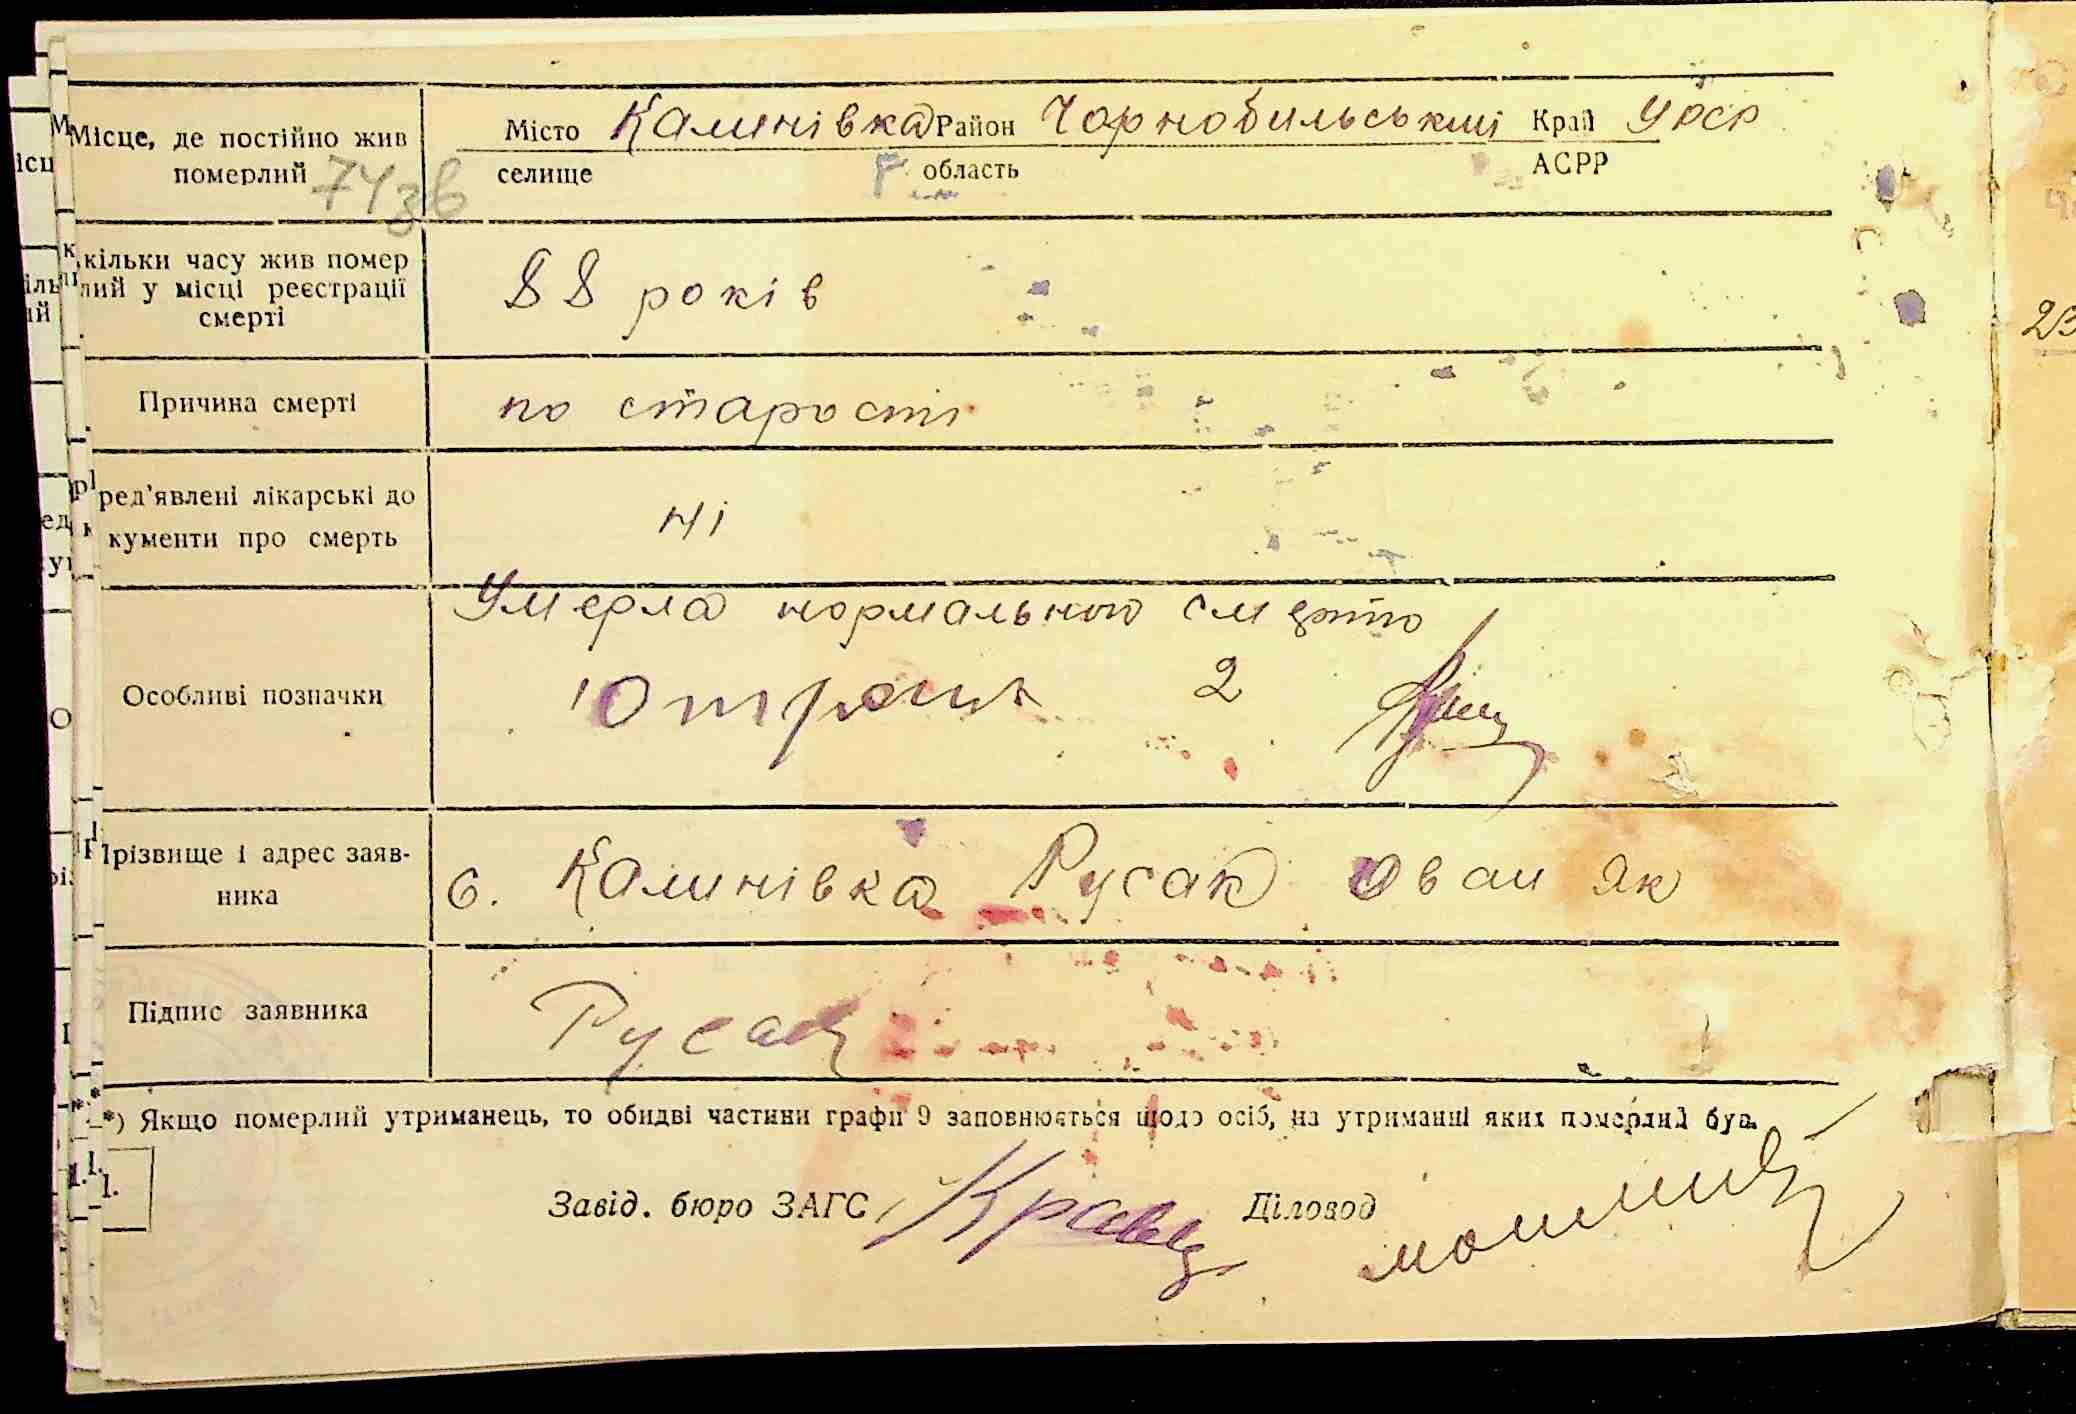 Місце, де постійно жив
померлий
Місто Калинівка Район Чорнобильський Край УРСР
селище область АСРР
кільки часу жив помер
лий у місці реєстрації
смерті
88 років
Причина смерті
по старості
ред'явлені лікарські до
кументи про смерть
ні
Умерла нормальною смертю
Особливі позначки
2
Прізвище і адрес заяв-
ника
с. Калинівка Русак Іван Як
Підпис заявника
Русак
*) Якщо померлий утриманець, то обидві частини графи 9 заповнюється щодо осіб, на утриманні яких померлий був.
1.
Завід. бюро ЗАГС Кравец Діловод